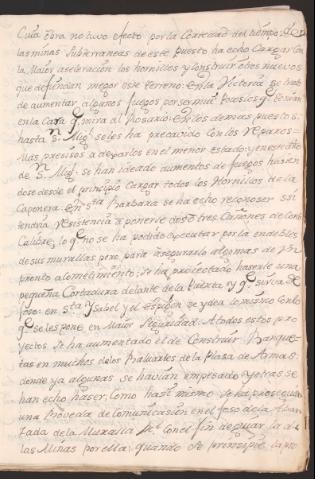 Cuia obra no tuvo efecto por la cortedad del tiempo. A
las minas subterraneas de este puesto ha echo Cargar con
la Maior aseleracion los hornillos y Construir otros nuevos
que defiendan mejor ese terreno: En la Victoria se trata
de aumentar algunos fuegos por ser mui escasios q.e tenian
en la Cara q.e mira al Rosario: En los demas puestos
hasta S.n Mig.l se les ha precavido con los reparos
Mas precisos a dejarlos en el menor estado: y en este
de S.n Mig.l se han ideado aumentos de fuegos havien
dose desde el principio Cargar todos los Hornillos de la
Caponera. En S.ta Barbara se ha echo reconoser si
tendria resistencia a ponerle dos o tres Cañones de Cor
Calibre, lo q.e no se ha podido executar por la endebles
de sus murallas pero, para asegurarlo algo mas de
pronto acometimiento, se ha proiectado haserle una
pequeña Cortadura delante de la Puerta y q.e sirva de
foso: en S.ta Ysabel y el espigon se ydea lo mismo con lo
q.e se les pone en Maior seguridad: A todos estos pro
yectos se ha aumentado el de Construir Banque
tas en muchos de los Baluartes de la Plasa de Armas
donde ya algunas se havian empesado y otras se
han echo haser, como hasi mismo se ha proseguido
una Bobeda de Comunicacion en el foso de la Aban
zada de la Muralla R.l con el fin de guiar la de
las Minas por ella: quando se principie la pro